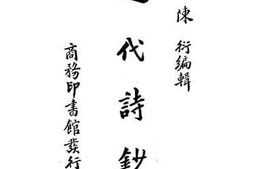 陳衍編輯
代詩鈔
商務印書館發行